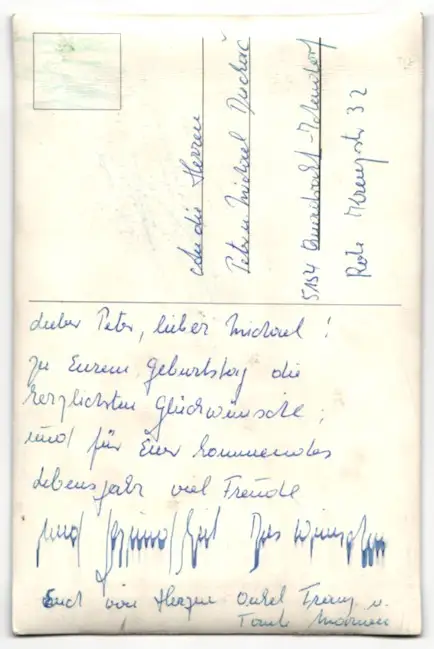 An die Herren
Peter u. Michael
5154 Quadrath-Ichendorf
Rote Kreuzstr 32
Lieber Peter, lieber Michael!
Zu Eurem Geburtstag die
herzlichsten Glückwünsche,
und für Euer kommendes
Lebensjahr viel Freude
und Gesundheit Das wünschen
Euch von Herzen Onkel Franz u.
Tante